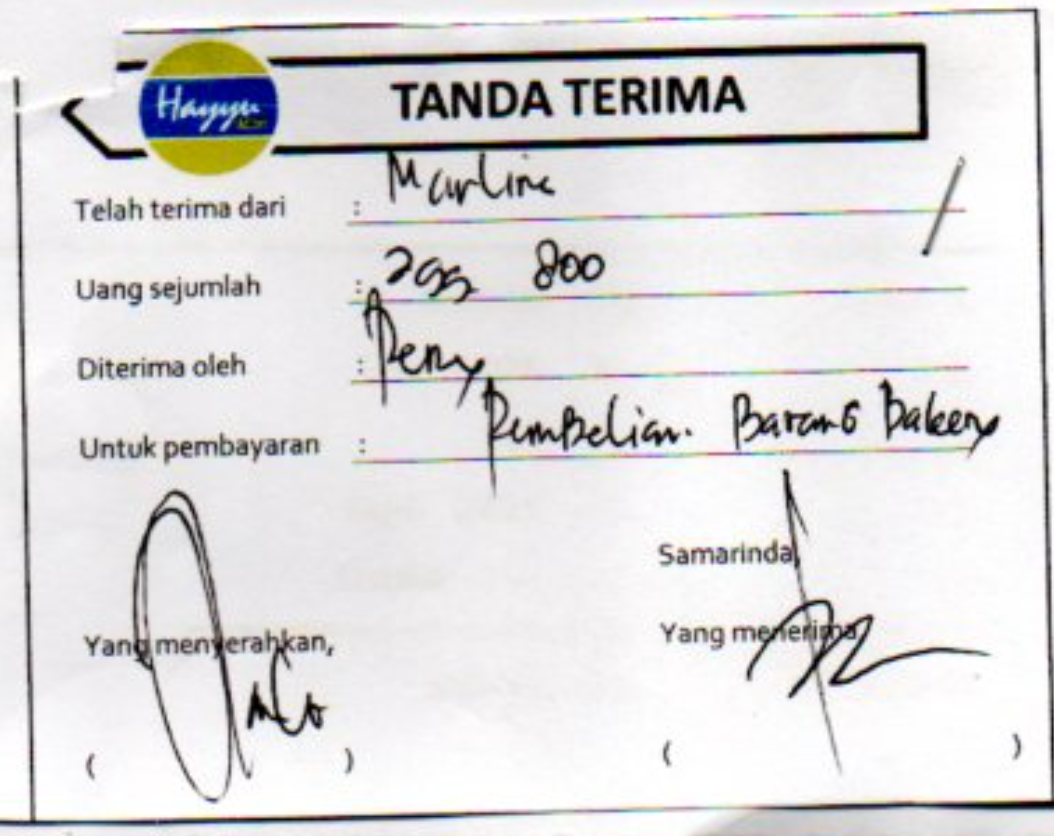 Hayyu
TANDA TERIMA
Telah terima dari : Marline
Uang sejumlah : 299. 800
Diterima oleh : Peny
Untuk pembayaran : Pembelian. Barang Bakery
Samarinda,
Yang menyerahkan, Yang menerima,
( ) ( )